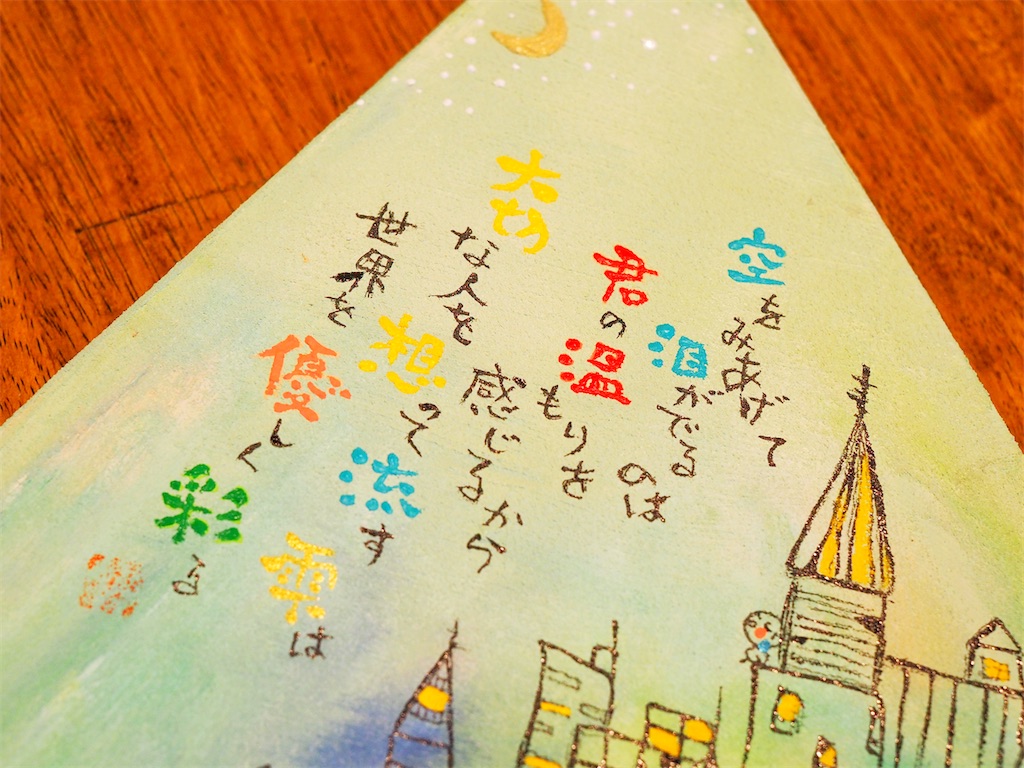 空をみあげて
泪がでるのは
君の温もりを
感じるから
大切
な人を
想って流す雫は
世界を
優しく
彩る